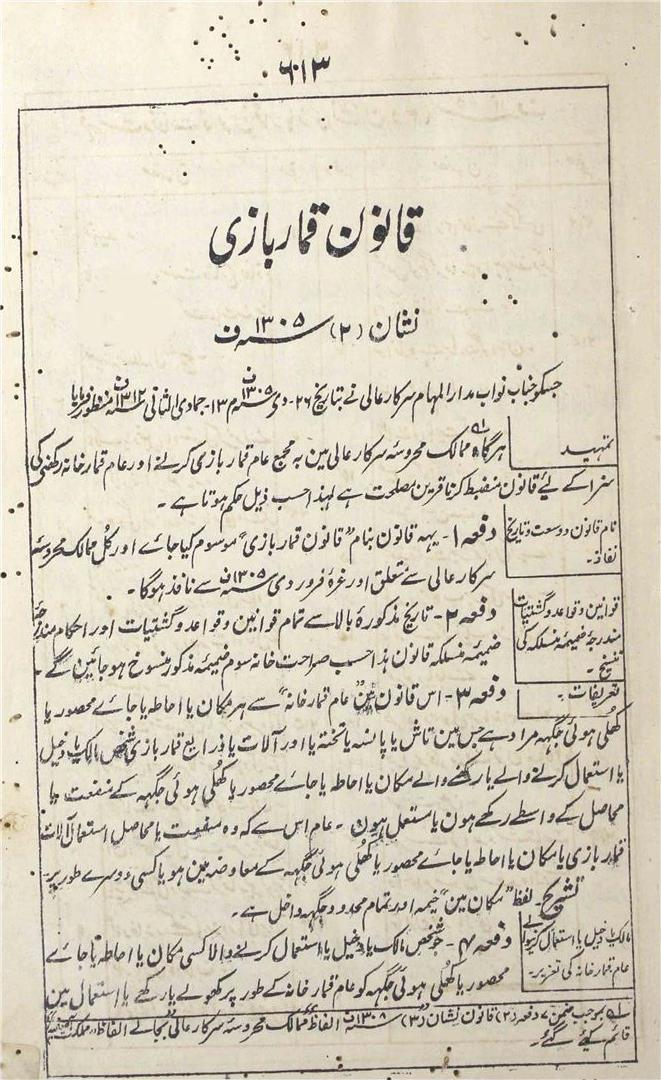 ۶۱۳
قانون قمار بازی
نشان (۲) ۱۳۰۵ سنہ ف
جسکو جناب نواب مدار المہام سرکار عالی نے بتاریخ ۲۶- دی ۱۳۰۵ سنہ ف م ۱۳- جمادی الثانی ۱۳۱۳ سنہ منظور فرمایا
تمہید
ہرگاہ ممالک محروسہ سرکار عالی مین بہ مجمع عام قمار بازی کرنے اور عام قمار خانہ رکھنی کی
سزا کے لیٔے قانون منضبط کرنا قرین مصلحت ہے لہذا حسب ذیل حکم ہوتا ہے ۔
نام قانون و وسعت و تاریخ
نفاذ ۔
دفعہ ۱- یہہ قانون بنام "قانون قمار بازی" موسوم کیا جاے اور کُل ممالک محروسہ
سرکار عالی سے متعلق اور غرۂ فروردی ۱۳۰۵ سنہ ف سے نافذ ہوگا ۔
قوانین و قواعد و گشتیات
مندرجہ ضمیمہ منسلکہ کی
تنسیخ ۔
دفعہ ۲- تاریخ مذکورۂ بالا سے تمام قوانین و قواعد و گشتیات اور احکام مندرجہ
ضمیمہ منسلکہ قانون ہذا حسب صراحت خانہ سوم ضمیمہ مذکور منسوخ ہو جائین گے ۔
تعریفات ۔
دفعہ ۳- اس قانون مین "عام قمار خانہ" سے ہر مکان یا احاطہ یا جاے محصور یا
کھلی ہوئی جگہہ مراد ہے جس مین تاش یا پانسہ یا تختہ یا اور آلات یا ذرایع قمار بازی شخص مالک یا دخیل
یا استعمال کرنے والے یا رکھنے والے مکان یا احاطہ یا جاے محصور یا کھلی ہوئی جگہہ کے منفعت یا
محاصل کے واسطے رکھے ہون یا مستعمل ہون ۔ عام اس سے کہ وہ منفعت یا محاصل استعمال آلات
قمار بازی یا مکان یا احاطہ یا جاے محصور یا کھلی ہوئی جگہہ کے معاوضہ مین ہو یا کسی دوسرے طور پر ۔
تشریح - لفظ "مکان مین" خیمہ اور تمام محدود جگہہ داخل ہے ۔
مالک یا دخیل یا استعمال کرنیوالے
عام قمار خانہ کی تعزیر ۔
دفعہ ۴- جو شخص مالک یا دخیل یا استعمال کرنے والا کسی مکان یا احاطہ یا جاے
محصور یا کھلی ہوئی جگہہ کو عام قمار خانہ کے طور پر کھولے یا رکھے یا استعمال مین
بموجب ضمن ۷ دفعہ (۲) قانون نشان (۳) ۱۳۰۸ سنہ ف الفاظ "ممالک محروسہ سرکار عالی" بجاے الفاظ
قائم کیٔے گئے ۔